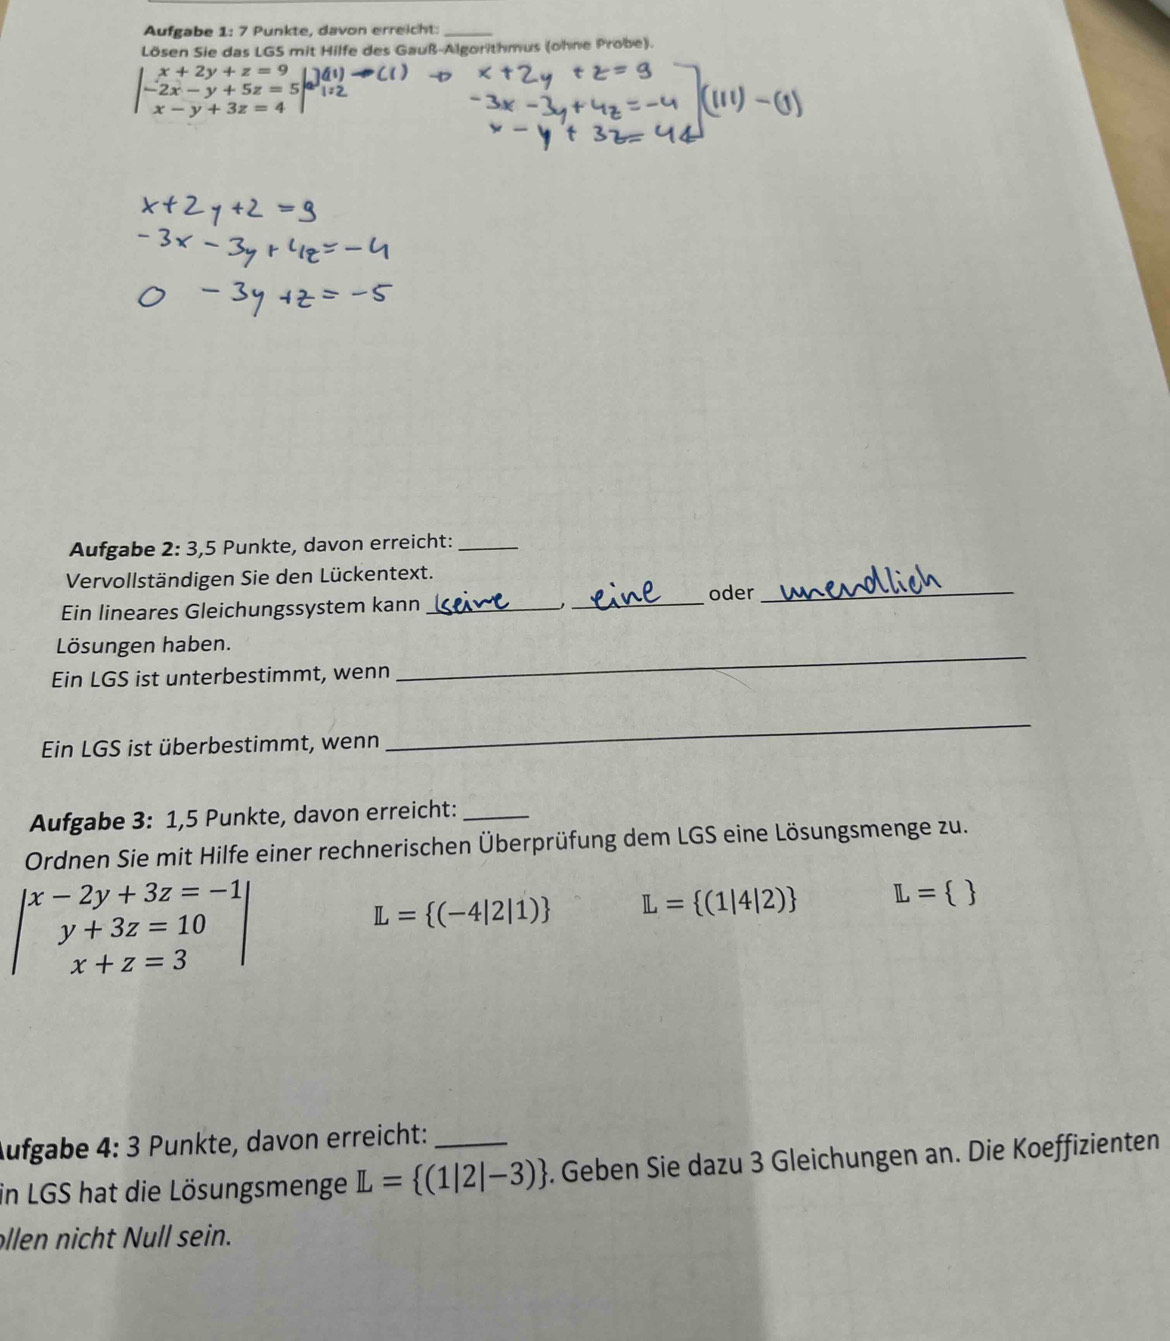 Aufgabe 1: 7 Punkte, davon erreicht: ______
Lösen Sie das LGS mit Hilfe des Gauß-Algorithmus (ohne Probe).
x + 2y + z = 9
−2x − y + 5z = 5
x − y + 3z = 4
x + 2y + z = 9
-3x - 3y + 4z = -4
x - y + 3z = 4
(III) - (I)
x + 2y + z = 9
-3x - 3y + 4z = -4
0 - 3y + z = -5
Aufgabe 2: 3,5 Punkte, davon erreicht: ______
Vervollständigen Sie den Lückentext.
Ein lineares Gleichungssystem kann keine, eine oder unendlich
Lösungen haben.
Ein LGS ist unterbestimmt, wenn ______
Ein LGS ist überbestimmt, wenn ______
Aufgabe 3: 1,5 Punkte, davon erreicht: ______
Ordnen Sie mit Hilfe einer rechnerischen Überprüfung dem LGS eine Lösungsmenge zu.
x − 2y + 3z = −1
y + 3z = 10
x + z = 3
𝕃 = {(−4|2|1)} 𝕃 = {(1|4|2)} 𝕃 = { }
Aufgabe 4: 3 Punkte, davon erreicht: ______
in LGS hat die Lösungsmenge 𝕃 = {(1|2|−3)}. Geben Sie dazu 3 Gleichungen an. Die Koeffizienten
ollen nicht Null sein.